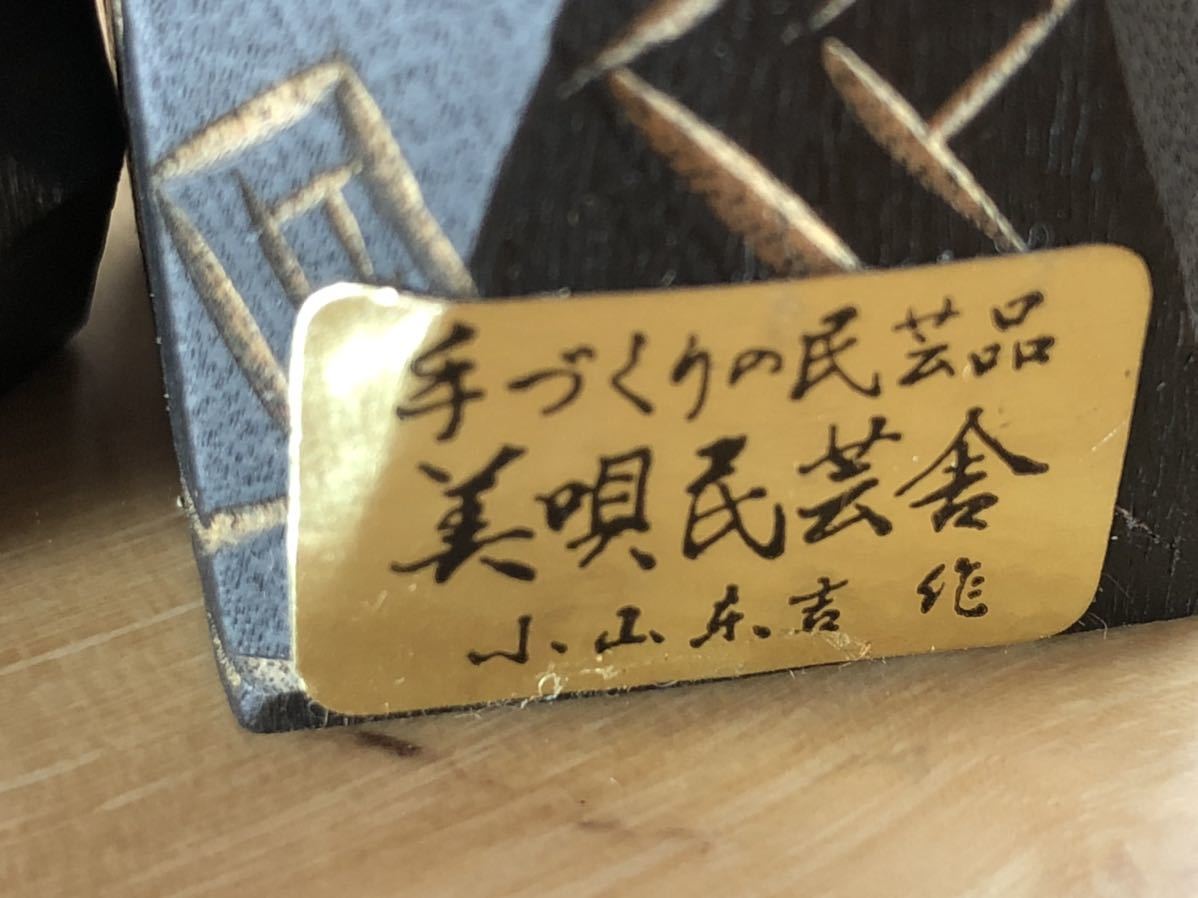 手づくりの民芸品
美唄民芸舎
小山东吉 作